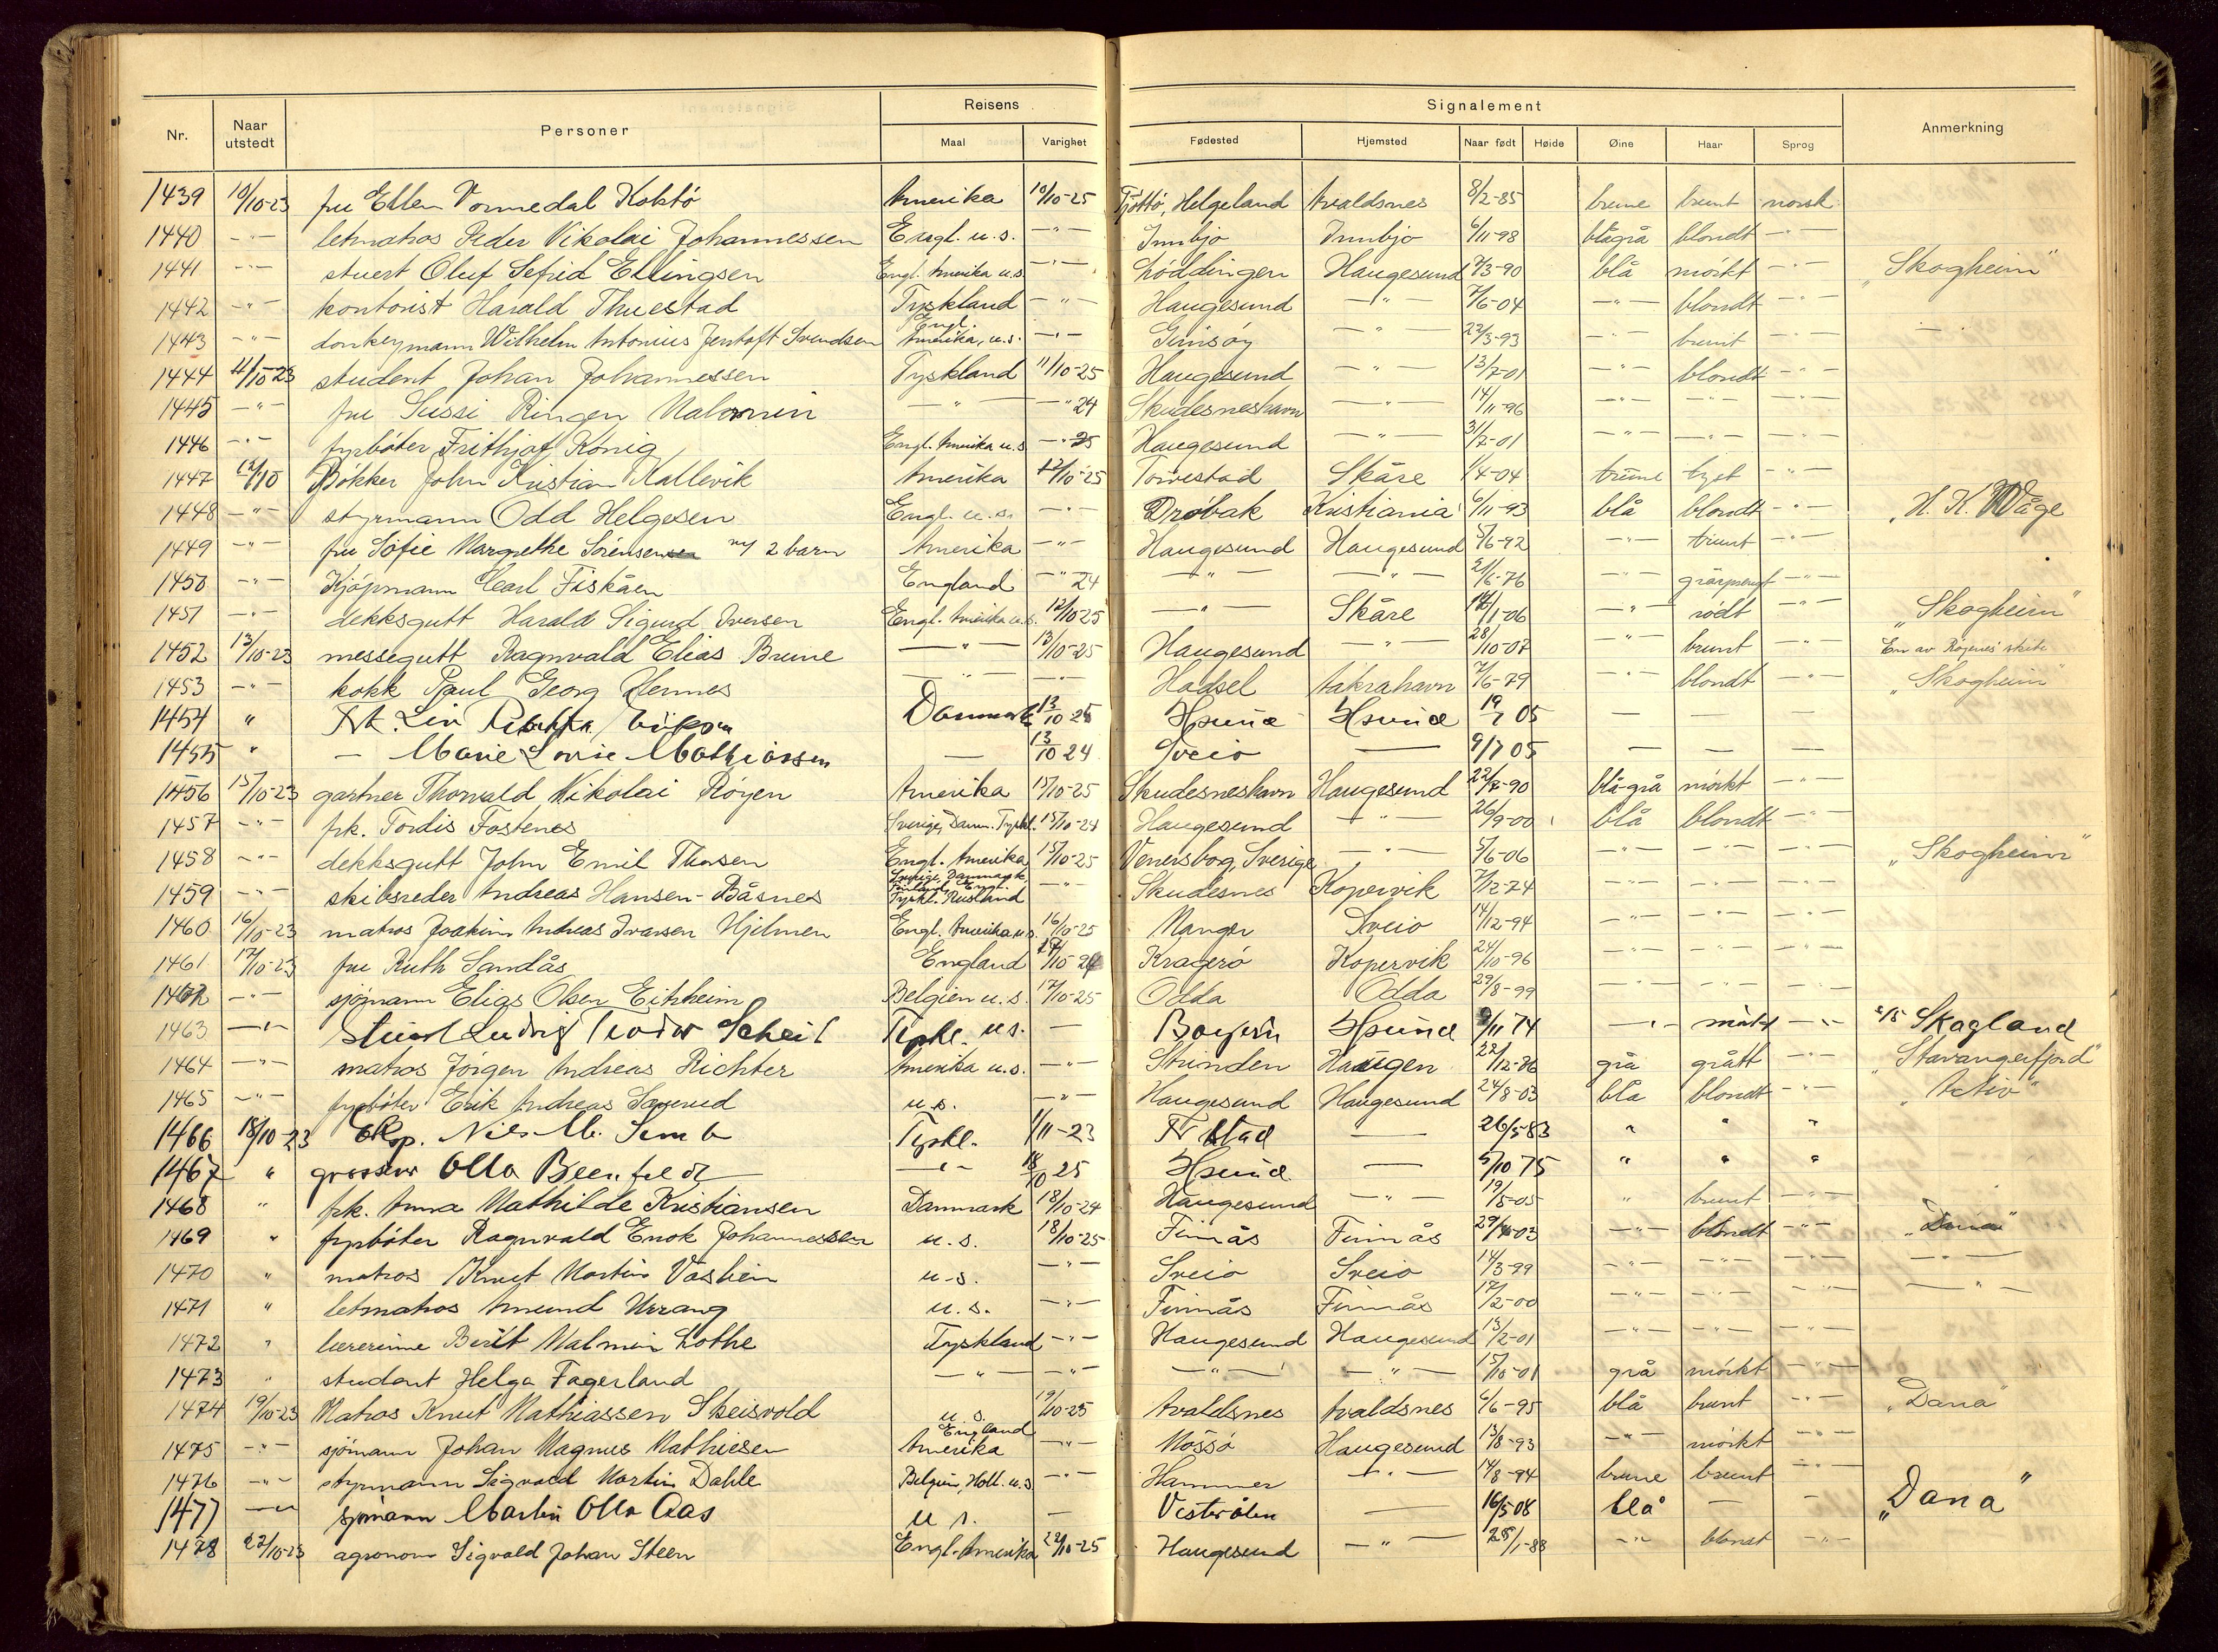 Reisens Signalement
Nr. Naar utstedt Personer Maal Varighet Fødested Hjemsted Naar født Høide Øine Haar Sprog Anmerkning
1439 10/10-23 fru Ellen Vormedal Koktö Amerika 10/10-25 Tjöttö, Helgeland Avaldsnes 8/2-85 brune brunt norsk
1440 -"- letmatros Peder Nikolai Johannessen Engl. u.s. -"- Innbjo Innbjo 6/11-98 blågrå blondt -"-
1441 -"- stuert Oluf Sefrid Ellingsen Engl. Amerika u.s. -"- Löddingen Haugesund 7/3-90 blå mörkt -"- "Skogheim"
1442 -"- kontorist Harald Thuestad Tyskland -"- Haugesund -"- 7/6-04 -"- blondt -"-
1443 -"- donkeymann Wilhelm Antonius Jentoft Svendsen Engl. Amerika, u.s. -"- Gimsöy -"- 22/3-93 -"- brunt -"-
1444 11/10-23 student Johan Johannessen Tyskland 11/10-25 Haugesund -"- 13/7-01 -"- blondt -"-
1445 -"- fru Sussi Ringen Malmin -"- -"-24 Skudesneshavn -"- 14/11-96 -"- -"- -"-
1446 -"- fyrböter Frithjof König Engl. Amerika u.s. -"-25 Haugesund -"- 31/7-01 -"- -"- -"-
1447 12/10 Bökker John Kristian Kallevik Amerika 12/10-25 Torvestad Skåre 1/4-04 brune lyst -"-
1448 -"- styrmann Odd Helgesen Engl. u.s. -"- Dröbak Kristiania 6/11-93 blå blondt -"- "H. K. Våge
1449 -"- fru Sofie Margrethe Sörensen m/ 2 barn Amerika -"- Haugesund Haugesund 5/6-92 -"- brunt -"-
1450 -"- Kjöpmann Carl Fiskåen England -"-24 -"- -"- 21/6-76 -"- gråsprengt -"-
1451 -"- dekksgutt Harald Sigurd Iversen Engl. Amerika u.s. 12/10-25 -"- Skåre 14/1-06 -"- rödt -"- "Skogheim"
1452 13/10-23 messegutt Ragnvald Elias Brune -"- 13/10-25 Haugesund -"- 28/10-07 -"- brunt -"- En av Röyens skibe
1453 -"- kokk Paul Georg Hennes -"- -"- Hadsel Aakrahavn 7/6-79 -"- blondt -"- "Skogheim"
1454 " Frk. Liv Danmark 13/10 25 Hsund Hsund 19/7 05 — — —
1455 " — Marie Lovise Mathiassen — 13/10 24 Sveio — 9/7 05 — — —
1456 15/10-23 gartner Thorvald Nikolai Röyen Amerika 15/10-25 Skudesneshavn Haugesund 22/7-90 blå-grå mörkt -"-
1457 -"- frk. Tordis Fostenes Sverige, Danm. Tyskl. 15/10-24 Haugesund -"- 26/9-00 blå blondt -"-
1458 -"- dekksgutt John Emil Thorsen Engl. Amerika 15/10-25 Venersborg, Sverige -"- 5/6-06 -"- -"- -"- "Skogheim"
1459 -"- skibsreder Andreas Hansen-Båsnes Sverige, Danmark, Finland, Engl. Tyskl. Rusland -"- Skudesnes Kopervik 7/12-74 -"- -"- -"-
1460 16/10-23 matros Joakim Andreas Ivarsen Hjelmen Engl. Amerika u.s. 16/10-25 Manger Sveio 14/12-94 -"- -"- -"-
1461 17/10-23 fru Ruth Sandås England 17/10-24 Kragerö Kopervik 24/10-96 -"- -"- -"-
1462 -"- sjömann Elias Olsen Eitrheim Belgien u.s. 17/10-25 Odda Odda 29/8-99 -"- -"- -"-
1463 -"- Stuert Ludvig Teodor Scheil Tyskl. u s. — Bayern Hsund 9/11 74 -"- mörkt -"- s/s Skagland
1464 -"- matros Jörgen Andreas Richter Amerika u.s. -"- Strinden Haugen 22/12-86 grå grått -"- "Stavangerfjord"
1465 -"- fyrböter Erik Andreas u.s. -"- Haugesund Haugesund 24/8-03 blå blondt -"- "Activ"
1466 18/10-23 Eksp. Nils M. Tyskl. 1/11-23 Fr stad — 26/5-83 " " "
1467 " grosserer Otto Beenfeldt -"- 18/10 25 Hsund — 5/10 75 " " "
1468 " frk. Anna Mathilde Kristiansen Danmark 18/10-24 Haugesund -"- 19/5-05 " brunt -"-
1469 " fyrböter Ragnvald Enok Johannessen u.s. 18/10-25 Finnås Finnås 29/4-03 -"- blondt -"- "Dana"
1470 " matros Knut Martin u.s. -"- Sveio Sveio 14/3-99 -"- -"- -"- -"-
1471 " letmatros Amund Urrang u.s. -"- Finnås Finnås 17/2-00 -"- -"- -"- -"-
1472 " lærerinne Berit Malmin Lothe Tyskland -"- Haugesund Haugesund 13/2-01 -"- -"- -"-
1473 " student Helga Fagerland -"- -"- -"- -"- 15/10-01 grå mörkt -"-
1474 19/10-23 Matros Knut Mathiassen Skeisvold u.s. 19/10-25 Avaldsnes Avaldsnes 6/6-95 blå brunt -"- "Dana"
1475 -"- sjömann Johan Magnus Mathiesen England Amerika -"- Mossö Haugesund 13/8-93 -"- mörkt -"-
1476 -"- styrmann Sigvald Martin Dahle Belgien, Holl. u.s. -"- Hammer -"- 14/8-94 brune brunt -"-
1477 -"- sjömann Martin Otto Aas u s. — Vesterålen — 16/5 08 blå — - "Dana"
1478 22/10-23 agronom Sigvald Johan Steen Engl. Amerika 22/10-25 Haugesund -"- 25/1-88 -"- blondt -"-